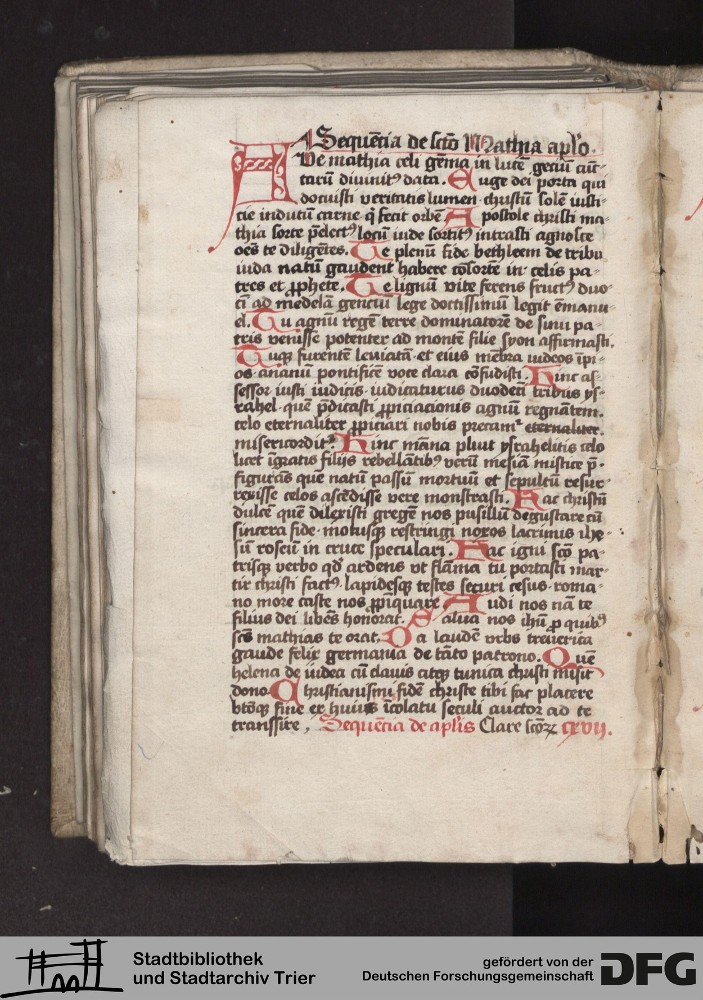 Sequēcia de scto Mathia aplo.
Ave mathia celi gēma in lucē geciū aūc-
tarū diuinitꝰ data. Euge dei porta qui
docuisti veritatis lumen christū solē iusti-
cie indutū carne q̄ fecit orbē. Apostole christi ma-
thia sorte p̄electꝰ locū iude sortitꝰ intrasti agnosce
oēs te diligētes. Te plenū fide bethleem de tribu
iuda natū gaudent habere cōsorte in celis pa-
tres et ꝓphete. Te lignū vite ferens fructꝰ duo
ci ad medelā genciū lege doctissimū legit emanu
el. Tu agnū regē terre dominatorē de sinu pa-
tris venisse potenter ad montē filie syon affirmasti.
Tuqꝫ furentē leuiatā et eius mēbra iudeos īpi-
os ananiū pontificē voce clara cōfudisti. Hinc as-
sessor iusti iudicis iudicaturus duodeci tribus ys-
rahel quē p̄dicasti ꝓpiciacionis agnū regnātem.
celo eternaliter ꝓpiciari nobis precam̄ eternaliter
misericordit. Hinc māna pluit ysrahelitis celo
licet īgratis filijs rebellātibꝰ verū mesiā mistice p̄-
figurās quē natū passū mortuū et sepultū resur-
rexisse celos ascēdisse vere monstrasti. Hac christū
dulcē quē dilexisti gregē nos pusillū degustare cū
sincera fide motusqꝫ restringi noxos lacrimis ihe-
sū roseū in cruce speculari. Hac igni scō pa-
trisqꝫ verbo qd̄ ardens vt flāma tu portasti mar-
tir christi factꝰ lapidesqꝫ testes securi cesus roma-
no more caste nos ꝓpīquare Audi nos nā te
filius dei libēs honorat. Salua nos ihū ꝓ quibꝰ
scs mathias te orat. Da laudē vrbs treuerica
gaude felix germania de tāto patrono. Quē
helena de iudea cū clauis atqꝫ tunica christi misit
dono. Christianismi fidē christe tibi fac placere
btōqꝫ fine ex huius īcolatu seculi auctor ad te
transire, Sequēcia de aplis Clare scōꝝ cxvij.
Stadtbibliothek
und Stadtarchiv Trier
gefördert von der
Deutschen Forschungsgemeinschaft
DFG